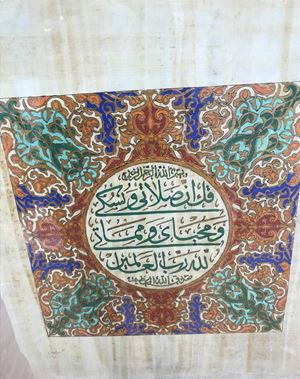 بسم الله الرحمن الرحيم
قل إن صلاتي ونسكي
ومحياي ومماتي
لله رب العالمين
صدق الله العظيم